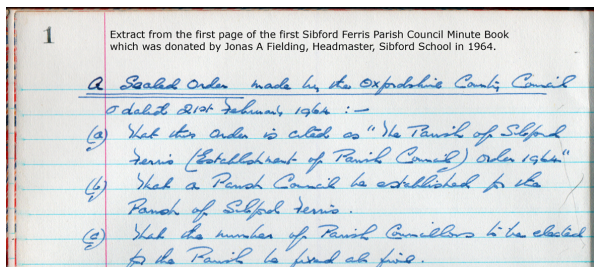 1
Extract from the first page of the first Sibford Ferris Parish Council Minute Book
which was donated by Jonas A Fielding, Headmaster, Sibford School in 1964.
A Sealed Order made by the Oxfordshire County Council
dated 21st February 1964 :-
(a) That this order is cited as "The Parish of Sibford
Ferris (Establishment of Parish Council) Order 1964"
(b) That a Parish Council be established for the
Parish of Sibford Ferris.
(c) That the number of Parish Councillors to be elected
for the Parish be fixed at five.